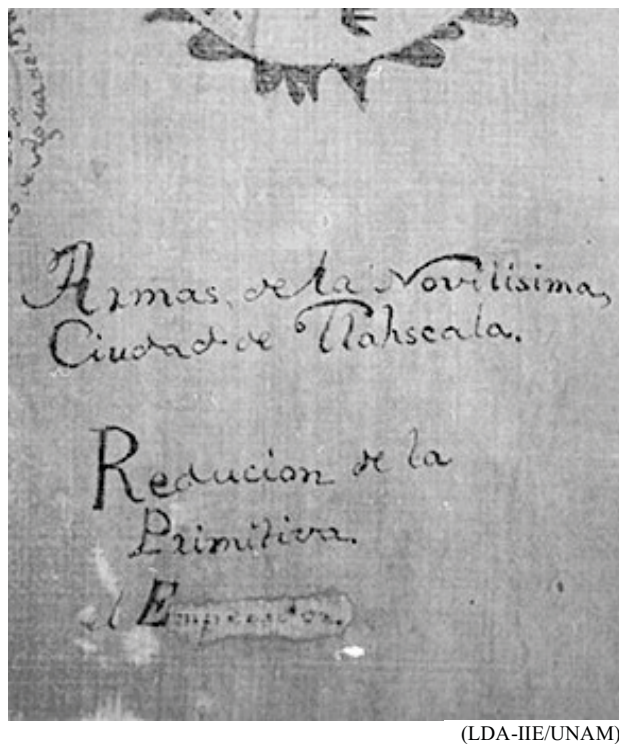 Armas, de la Novilisima,
Ciudad de Tlahscala.
Reducion de la
Primitiva.
el Emperador.
(LDA-IIE/UNAM)